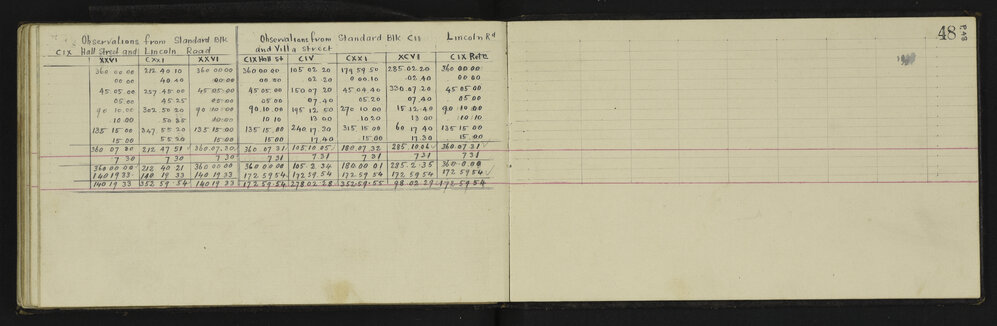 Observations from Standard Blk Observations from Standard Blk CII Lincoln Rd
CIX Hall Street and Lincoln Road and Villa Street
XXVI CXXI XXVI CIX Hall St CIV CXXI XCVI CIX Rete
360 00 00 212 40 10 360 00 00 360 00 00 105 02 20 179 59 50 285 02 20 360 00 00
00 00 40 40 00 00 00 00 02 20 0 00 10 02 40 00 00
45 05 00 257 45 00 45 05 00 45 05 00 150 07 20 45 04 40 330 07 20 45 05 00
05 00 45 25 05 00 05 00 07 40 05 20 07 40 05 00
90 10 00 302 50 20 90 10 00 90 10 00 195 12 50 270 10 00 15 12 40 90 10 00
10 00 50 35 10 00 10 10 13 00 10 20 13 00 10 10
135 15 00 347 55 20 135 15 00 135 15 00 240 17 20 315 15 00 60 17 40 135 15 00
15 00 55 20 15 00 15 00 17 40 15 00 17 30 15 00
360 07 30 212 47 51 360 07 30 360 07 31 105 10 05 180 07 32 285 10 06 360 07 31
7 30 7 30 7 30 7 31 7 31 7 31 7 31 7 31
360 00 00 212 40 21 360 00 00 360 00 00 105 2 34 180 00 01 285 2 35 360 0 00
140 19 33 140 19 33 140 19 33 172 59 54 172 59 54 172 59 54 172 59 54 172 59 54
140 19 33 352 59 54 140 19 33 172 59 54 278 02 28 352 59 55 98 02 29 172 59 54
48
P.48